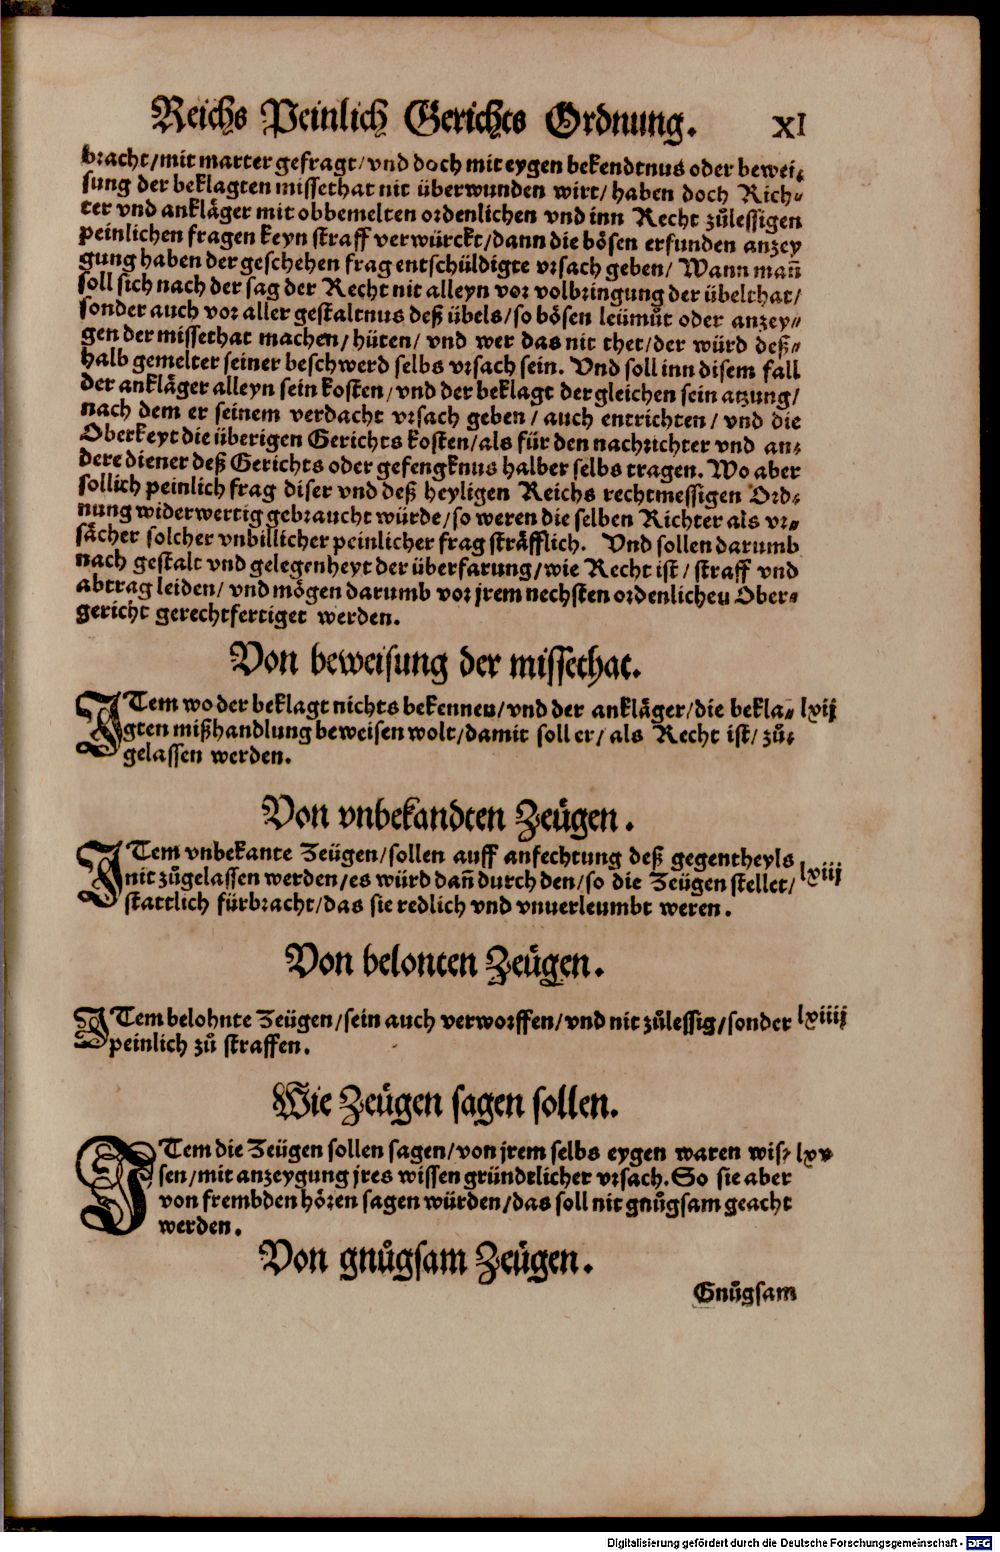 Reichs Peinlich Gerichts Ordnung. XI
bracht/mit marter gefragt/vnd doch mit eygen bekendtnus oder bewei⸗
sung der beklagten missethat nit überwunden wirt/haben doch Rich⸗
ter vnd ankläger mit obbemelten ordenlichen vnd inn Recht zůlessigen
peinlichen fragen keyn straff verwürckt/dann die bösen erfunden anzey
gung haben der geschehen frag entschüldigte vrsach geben/ Wann mañ
soll sich nach der sag der Recht nit alleyn vor volbringung der übelthat/
sonder auch vor aller gestaltnus deß übels/so bösen leümůt oder anzey⸗
gen der missethat machen/hüten/ vnd wer das nit thet/der würd deß⸗
halb gemelter seiner beschwerd selbs vrsach sein. Vnd soll inn disem fall
der ankläger alleyn sein kosten/vnd der beklagt dergleichen sein atzung/
nach dem er seinem verdacht vrsach geben/ auch entrichten/ vnd die
Oberkeyt die überigen Gerichts kosten/als für den nachrichter vnd an⸗
dere diener deß Gerichts oder gefengknus halber selbs tragen. Wo aber
sollich peinlich frag diser vnd deß heyligen Reichs rechtmessigen Ord⸗
nung widerwertig gebraucht würde/so weren die selben Richter als vr⸗
sächer solcher vnbillicher peinlicher frag sträfflich. Vnd sollen darumb
nach gestalt vnd gelegenheyt der überfarung/wie Recht ist/ straff vnd
abtrag leiden/ vnd mögen darumb vor jrem nechsten ordenlicheu Ober⸗
gericht gerechtfertiget werden.
Von beweisung der missethat.
ITem wo der beklagt nichts bekennen/vnd der ankläger/die bekla⸗ lxij
gten mißhandlung beweisen wolt/damit soll er/ als Recht ist/ zů⸗
gelassen werden.
Von vnbekandten Zeügen.
ITem vnbekante Zeügen/sollen auff anfechtung deß gegentheyls
nit zůgelassen werden/es würd dañ durch den/so die Zeügen stellet/ lxiij
stattlich fürbracht/das sie redlich vnd vnuerleumbt weren.
Von belonten Zeügen.
ITem belohnte Zeügen/sein auch verworffen/vnd nit zůlessig/sonder lxiiij
peinlich zů straffen.
Wie Zeügen sagen sollen.
ITem die Zeügen sollen sagen/von jrem selbs eygen waren wis⸗ lxv
sen/mit anzeygung jres wissen gründtlicher vrsach. So sie aber
von frembden hören sagen würden/das soll nit gnůgsam geacht
werden.
Von gnůgsam Zeügen.
Gnůgsam
Digitalisierung gefördert durch die Deutsche Forschungsgemeinschaft - DFG